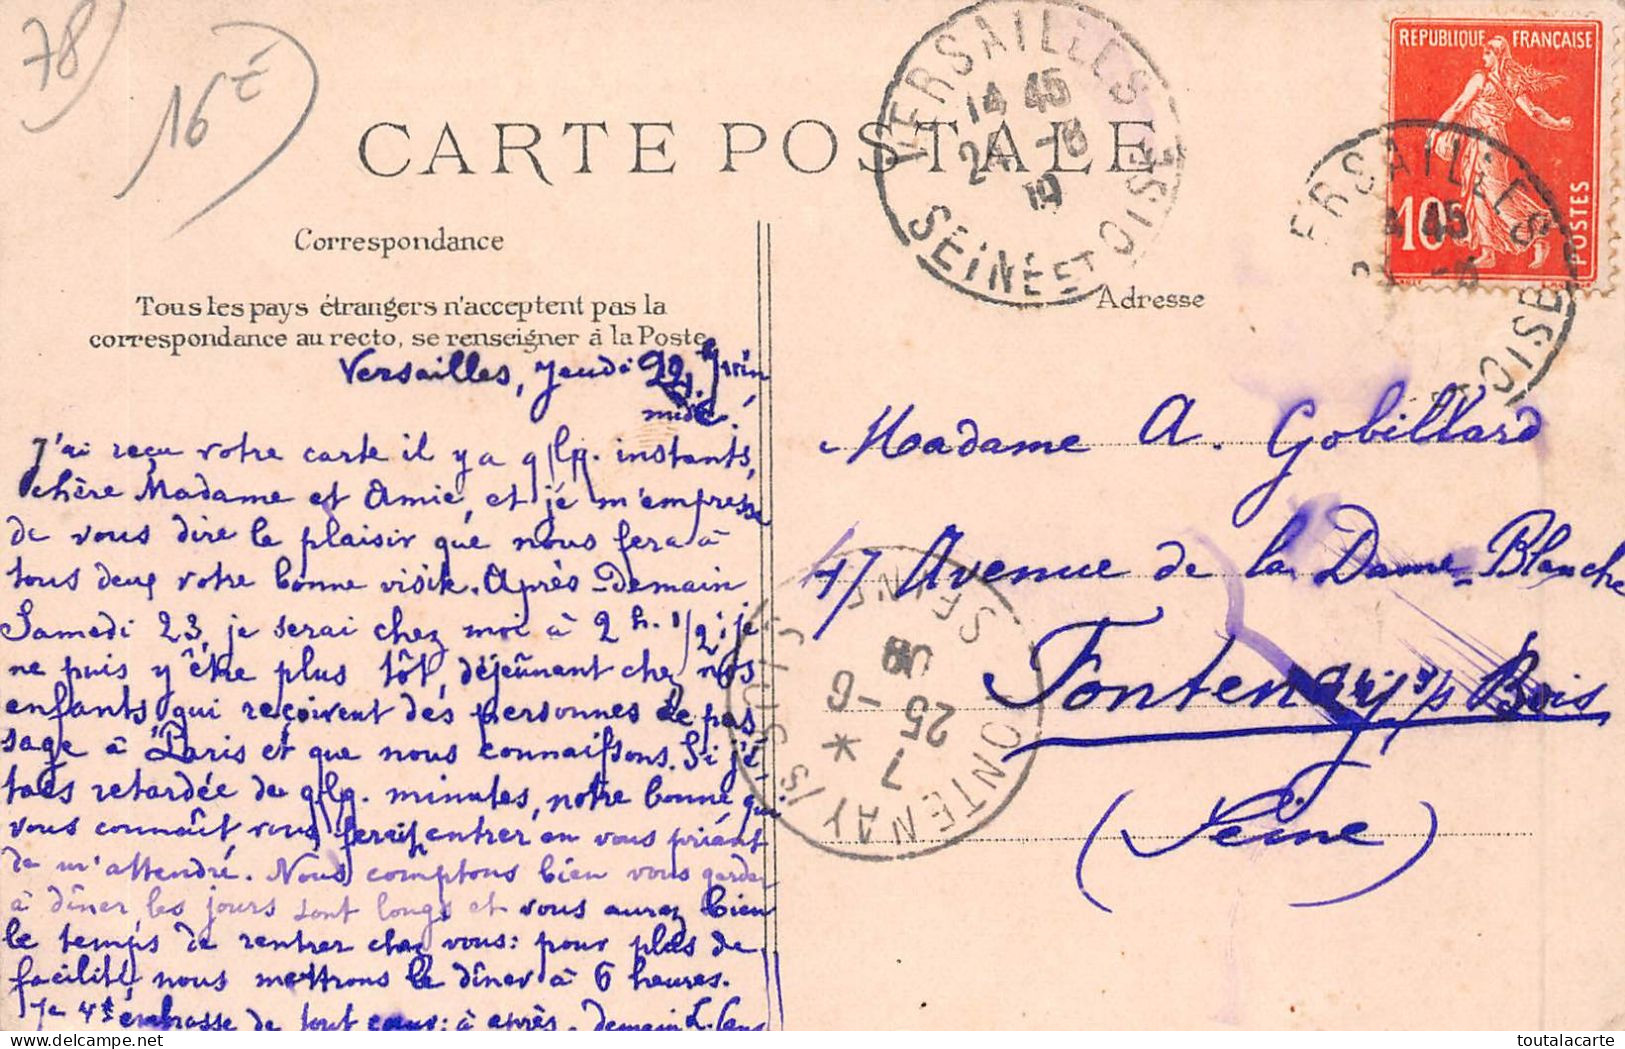 78
16 É
CARTE POSTALE
VERSAILLES
14 45
24 -6
19
SEINE ET OISE
REPUBLIQUE FRANÇAISE
10
POSTES
ERSAILLES
45
OISE
Correspondance
Tous les pays étrangers n'acceptent pas la
correspondance au recto, se renseigner à la Poste
Adresse
Versailles, Jeudi Juin
midi
J'ai reçu votre carte il y a qlq. instants,
chère Madame et Amie, et je m'empresse
de vous dire le plaisir que nous fera à
tous deux votre bonne visite. Après-Demain
Samedi 23, je serai chez moi à 2 h. 1/2; je
ne puis y être plus tôt, déjeûnant chez nos
enfants qui reçoivent des personnes de pas
sage à Paris et que nous connaissons. Si j'é
tais retardée de qlq. minutes, notre bonne qui
vous connaît vous ferait entrer en vous priant
de m'attendre. Nous comptons bien vous garder
à dîner, les jours sont longs et vous aurez bien
le temps de rentrer chez vous: pour plus de
facilité, nous mettrons le dîner à 6 heures.
Je vs embrasse de tout cœur; à après-demain
Madame A. Gobillard
47 Avenue de la Dame-Blanche
Fontenay s/s Bois
(Seine)
FONTENAY S/S BOIS
SEINE
7
25 -6
toutalacarte